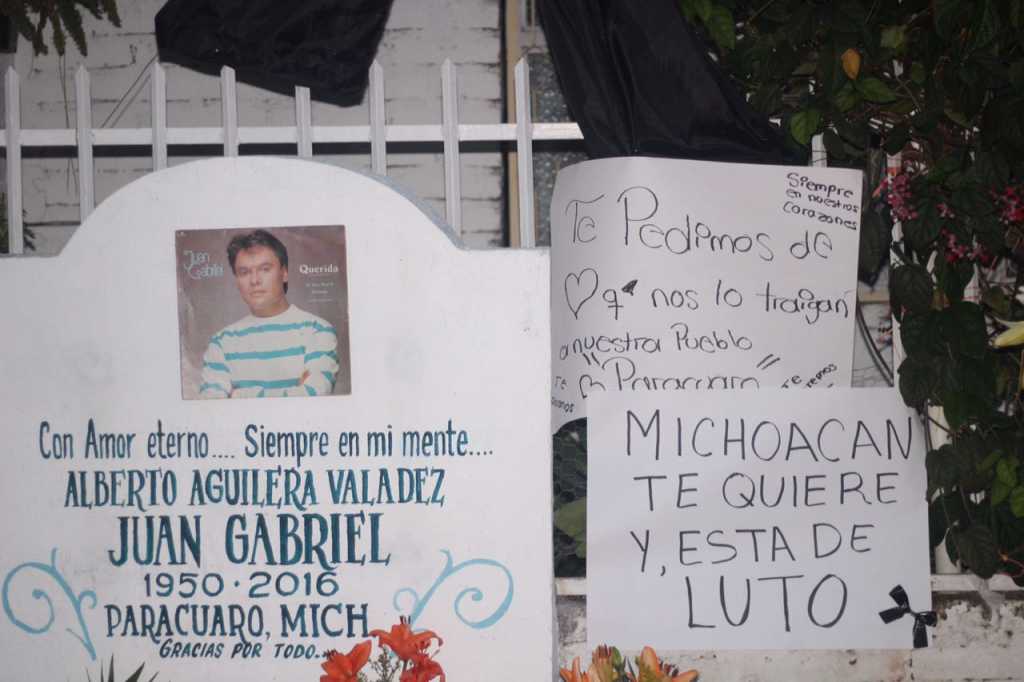 Juan
Gabriel
Querida
Con Amor eterno.... Siempre en mi mente....
ALBERTO AGUILERA VALADEZ
JUAN GABRIEL
1950 · 2016
PARACUARO, MICH
GRACIAS POR TODO...
Siempre
en nuestros
Corazones
Te Pedimos de
q' nos lo traigan
a nuestra Pueblo
"Paracuaro"
MICHOACAN
TE QUIERE
Y, ESTA DE
LUTO